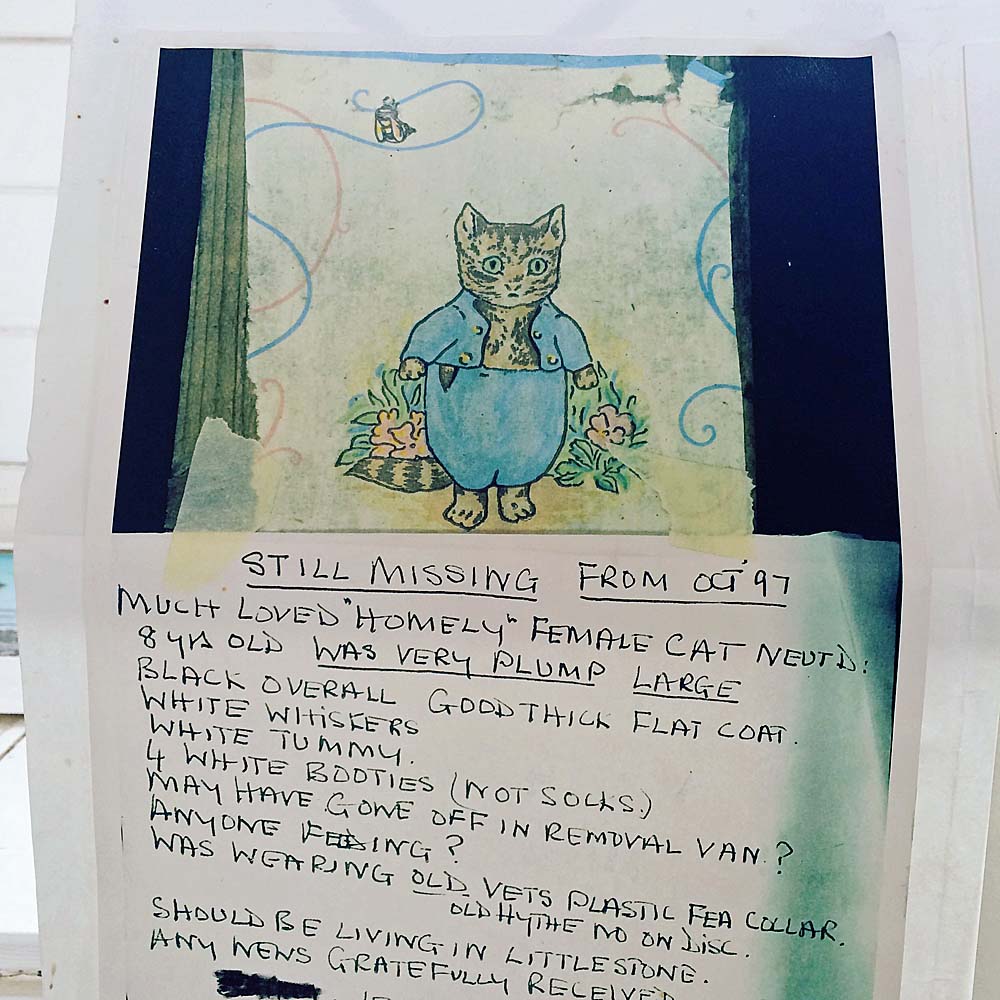 STILL MISSING FROM OCT '97
MUCH LOVED "HOMELY" FEMALE CAT NEUT'D:
8 yrs OLD WAS VERY PLUMP LARGE
BLACK OVERALL GOOD THICK FLAT COAT.
WHITE WHISKERS
WHITE TUMMY.
4 WHITE BOOTIES (NOT SOCKS.)
MAY HAVE GONE OFF IN REMOVAL VAN.?
ANYONE ?
WAS WEARING OLD VETS PLASTIC FEA COLLAR.
OLD HYTHE NO ON DISC.
SHOULD BE LIVING IN LITTLESTONE.
ANY NEWS GRATEFULLY RECEIVED